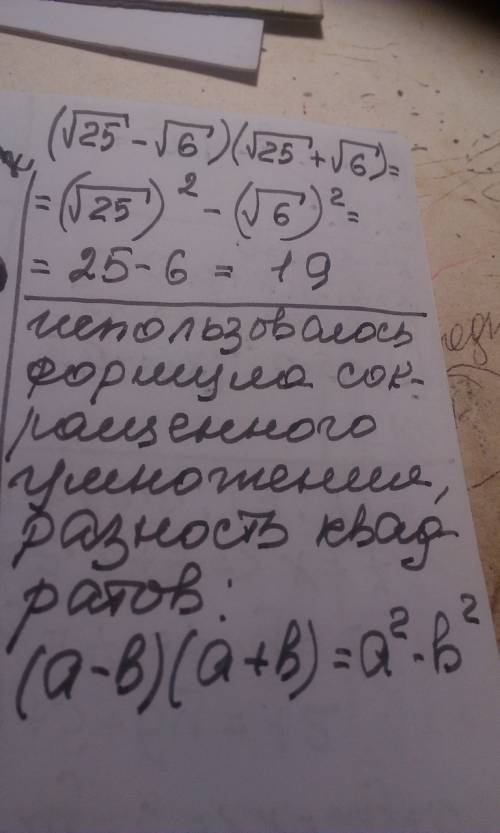 (√25 - √6)(√25 + √6) =
= (√25)² - (√6)² =
= 25 - 6 = 19
использовалось
формула сок-
ращенного
умножения,
разность квад
ратов:
(a-b)(a+b) = a² - b²